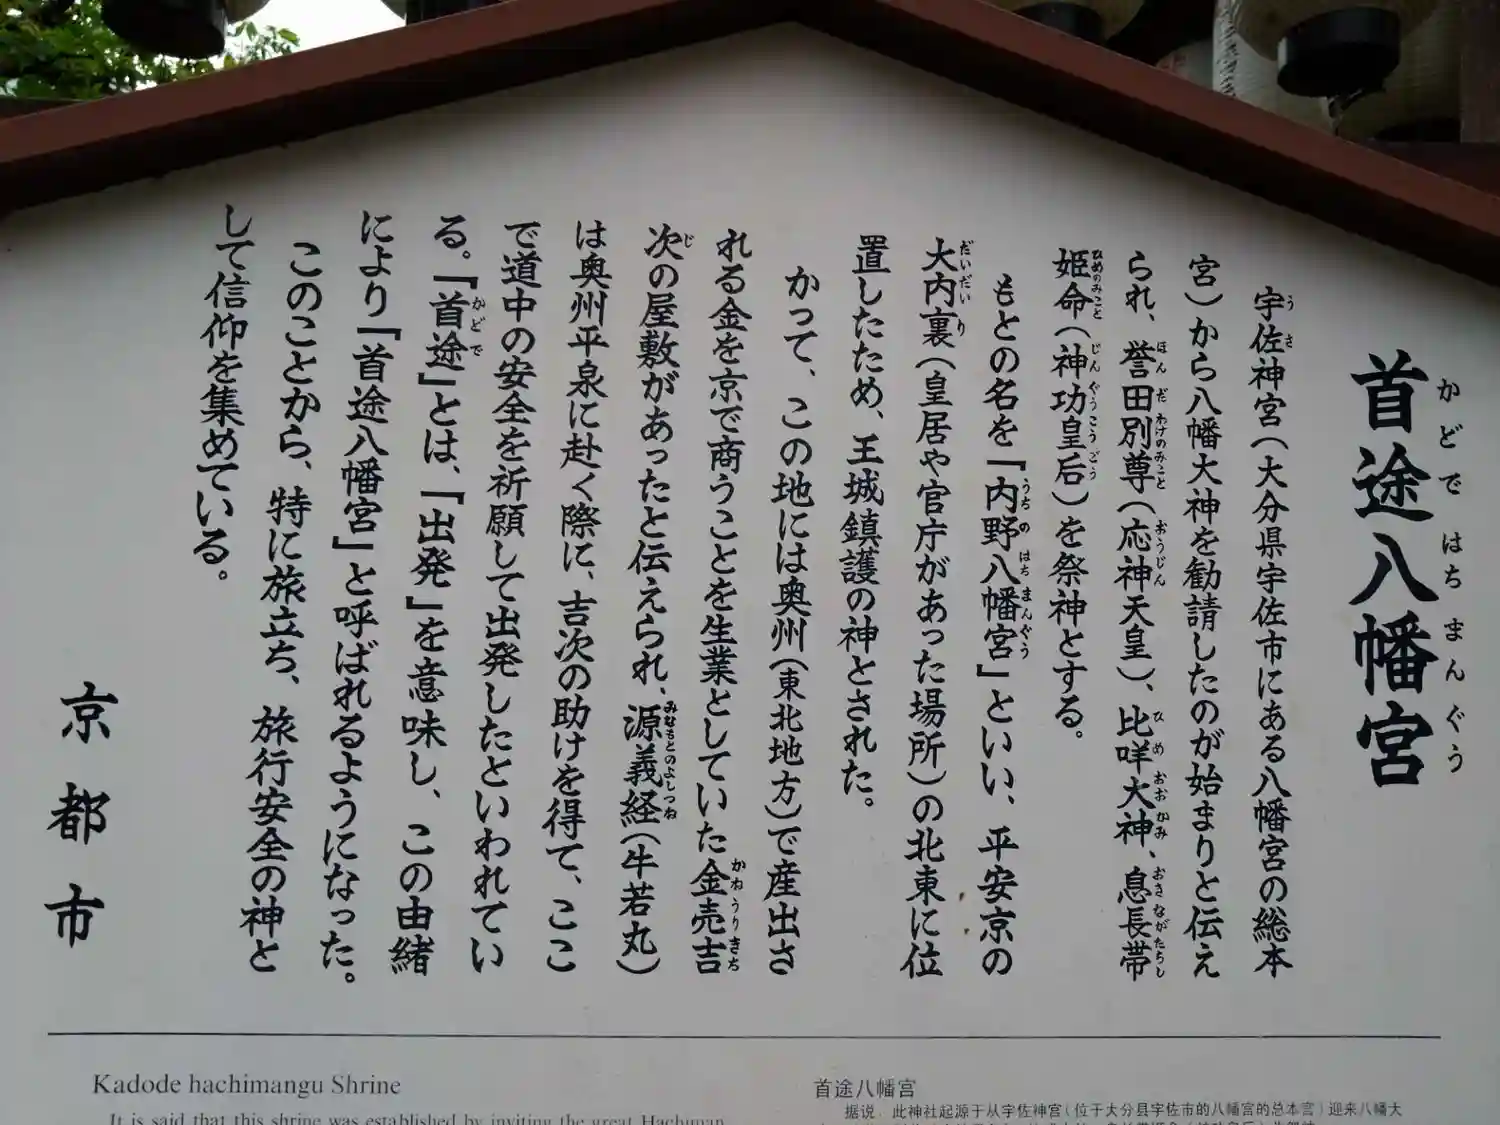 首途八幡宮
かどではちまんぐう
宇佐神宮（大分県宇佐市にある八幡宮の総本
宮）から八幡大神を勧請したのが始まりと伝え
られ、誉田別尊（応神天皇）、比咩大神、息長帯
姫命（神功皇后）を祭神とする。
もとの名を「内野八幡宮」といい、平安京の
大内裏（皇居や官庁があった場所）の北東に位
置したため、王城鎮護の神とされた。
かって、この地には奥州（東北地方）で産出さ
れる金を京で商うことを生業としていた金売吉
次の屋敷があったと伝えられ、源義経（牛若丸）
は奥州平泉に赴く際に、吉次の助けを得て、ここ
で道中の安全を祈願して出発したといわれてい
る。「首途」とは、「出発」を意味し、この由緒
により「首途八幡宮」と呼ばれるようになった。
このことから、特に旅立ち、旅行安全の神と
して信仰を集めている。
京都市
Kadode hachimangu Shrine
It is said that this shrine was established by inviting the great Hachiman
首途八幡宮
据说，此神社起源于从宇佐神宫（位于大分县宇佐市的八幡宫的总本宫）迎来八幡大